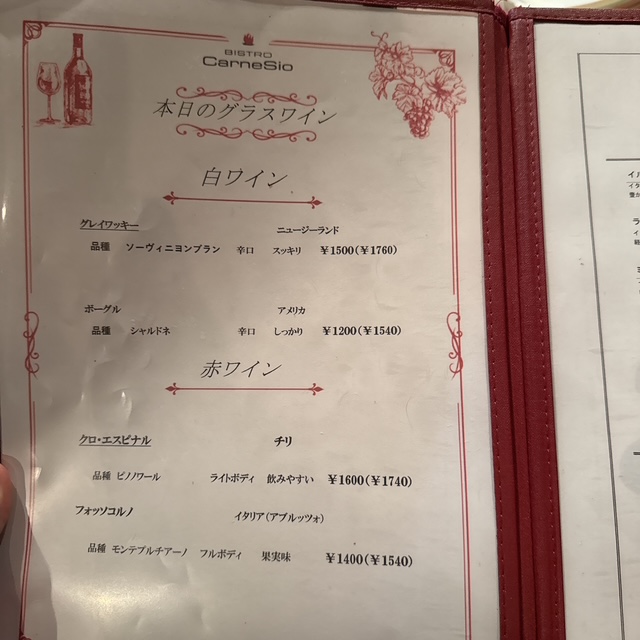 BISTRO
CarneSio
本日のグラスワイン
白ワイン
グレイワッキー ニュージーランド
品種 ソーヴィニヨンブラン 辛口 スッキリ ￥1500(￥1760)
ボーグル アメリカ
品種 シャルドネ 辛口 しっかり ￥1200(￥1540)
赤ワイン
クロ・エスピナル チリ
品種 ピノノワール ライトボディ 飲みやすい ￥1600(￥1740)
フォッソコルノ イタリア(アブルッツォ)
品種 モンテプルチアーノ フルボディ 果実味 ￥1400(￥1540)